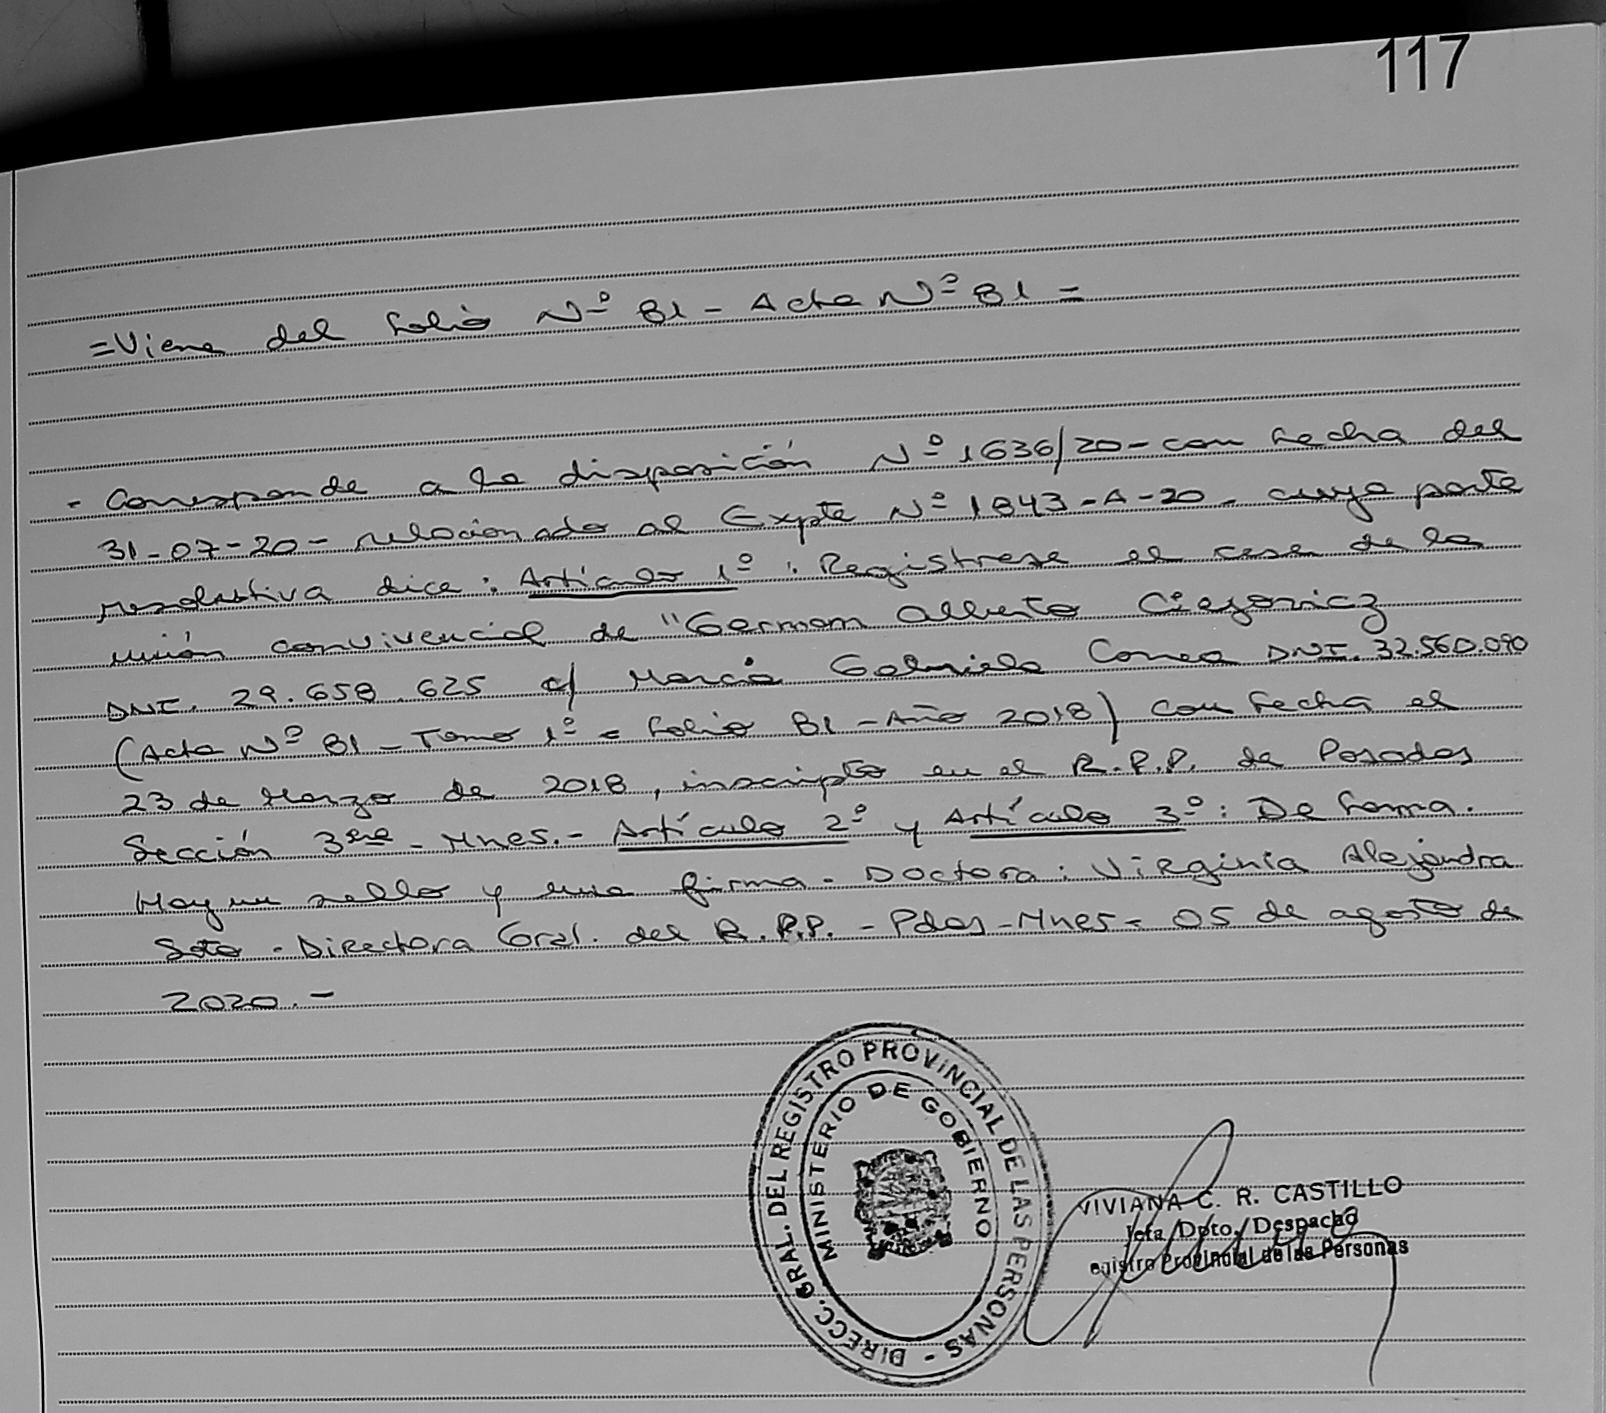 117
=Viene del folio Nº 81 - Acta Nº 81 =
- Corresponde a la disposición Nº 1636/20 - con fecha del
31-07-20 - relacionado al Expte Nº 1843-A-20 - cuya parte
resolutiva dice: Artículo 1º: Registrese el cese de la
unión convivencial de "German Alberto
DNI. 29.658.625 c/ Maria Gabriela Correa DNI. 32.560.090
(Acta Nº 81 - Tomo 1º - Folio 81 - Año 2018) con fecha el
23 de Marzo de 2018, inscripto en el R.P.P. de Posadas
Sección 3era - Mnes. - Artículo 2º y Artículo 3º: De forma.
Hay un sello y una firma - Doctora: Virginia Alejandra
Soto - Directora Gral. del R.P.P. - Pdas - Mnes - 05 de agosto de
2020.-
DIRECC. GRAL. DEL REGISTRO PROVINCIAL DE LAS PERSONAS -
MINISTERIO DE GOBIERNO
VIVIANA C. R. CASTILLO
Jefa Dpto. Despacho
egistro Provincial de las Personas